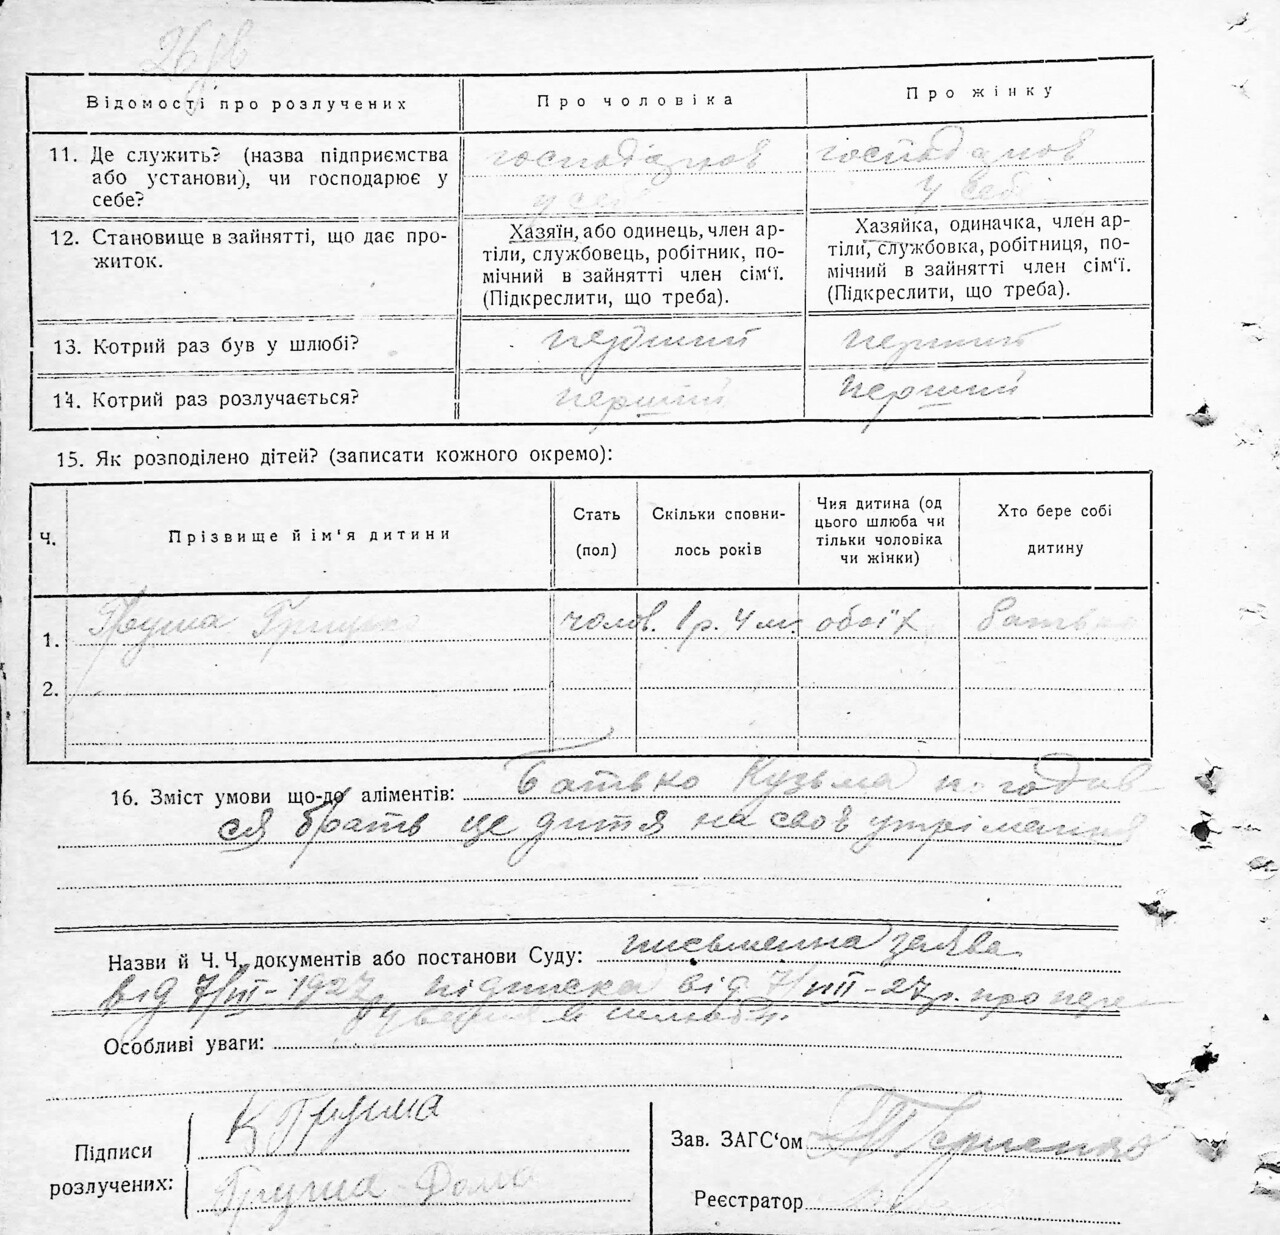 Відомості про розлучених
Про чоловіка
Про жінку
11. Де служить? (назва підприємства
або установи), чи господарює у
себе?
у себе
у себе
12. Становище в зайнятті, що дає про-
житок.
Хазяїн, або одинець, член ар-
тіли, службовець, робітник, по-
мічний в зайнятті член сім'ї.
(Підкреслити, що треба).
Хазяйка, одиначка, член ар-
тіли, службовка, робітниця, по-
мічний в зайнятті член сім'ї.
(Підкреслити, що треба).
13. Котрий раз був у шлюбі?
перший
перший
14. Котрий раз розлучається?
перший
перший
15. Як розподілено дітей? (записати кожного окремо):
Ч.
Прізвище й ім'я дитини
Стать
(пол)
Скільки сповни-
лось років
Чия дитина (од
цього шлюба чи
тільки чоловіка
чи жінки)
Хто бере собі
дитину
1. Груша Грицько чолов. 1 р. 4 м. обоїх батько
2.
16. Зміст умови що-до аліментів: Батько Кузьма погодив-
ся брать це дитя на своє утрімання
Назви й Ч. Ч. документів або постанови Суду: письменна заява
від 7/III-1927 р. підписка від 7/III-27 р. про пере-
Особливі уваги:
Підписи
розлучених:
К Груша
Груша
Зав. ЗАГС'ом
Реєстратор